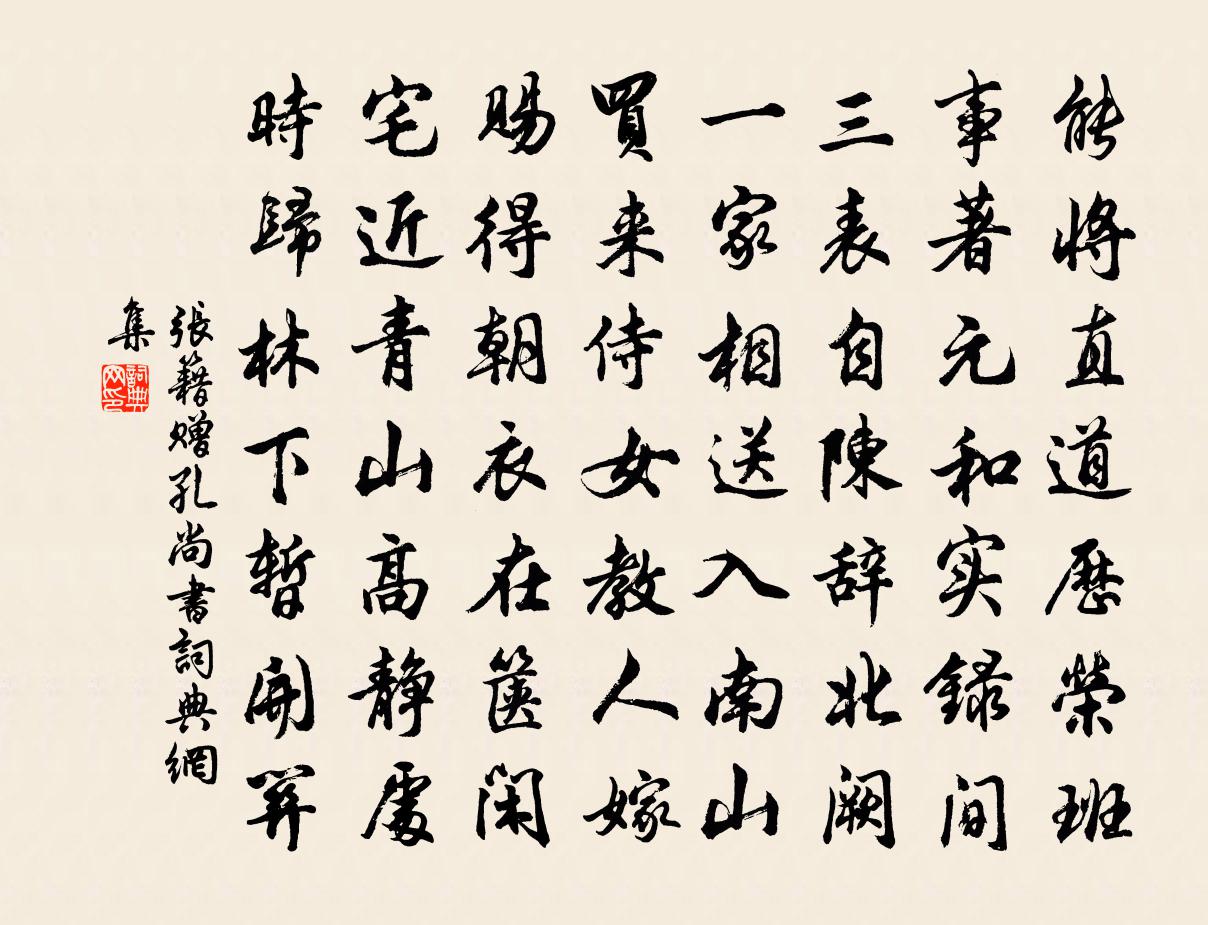 能將直道歷榮班
事著元和实錄間
三表自陳辞北闕
一家相送入南山
買来侍女教人嫁
賜得朝衣在篋閑
宅近青山高静處
時歸林下暫開關
張籍贈孔尚書詞典網
集
詞典
网印